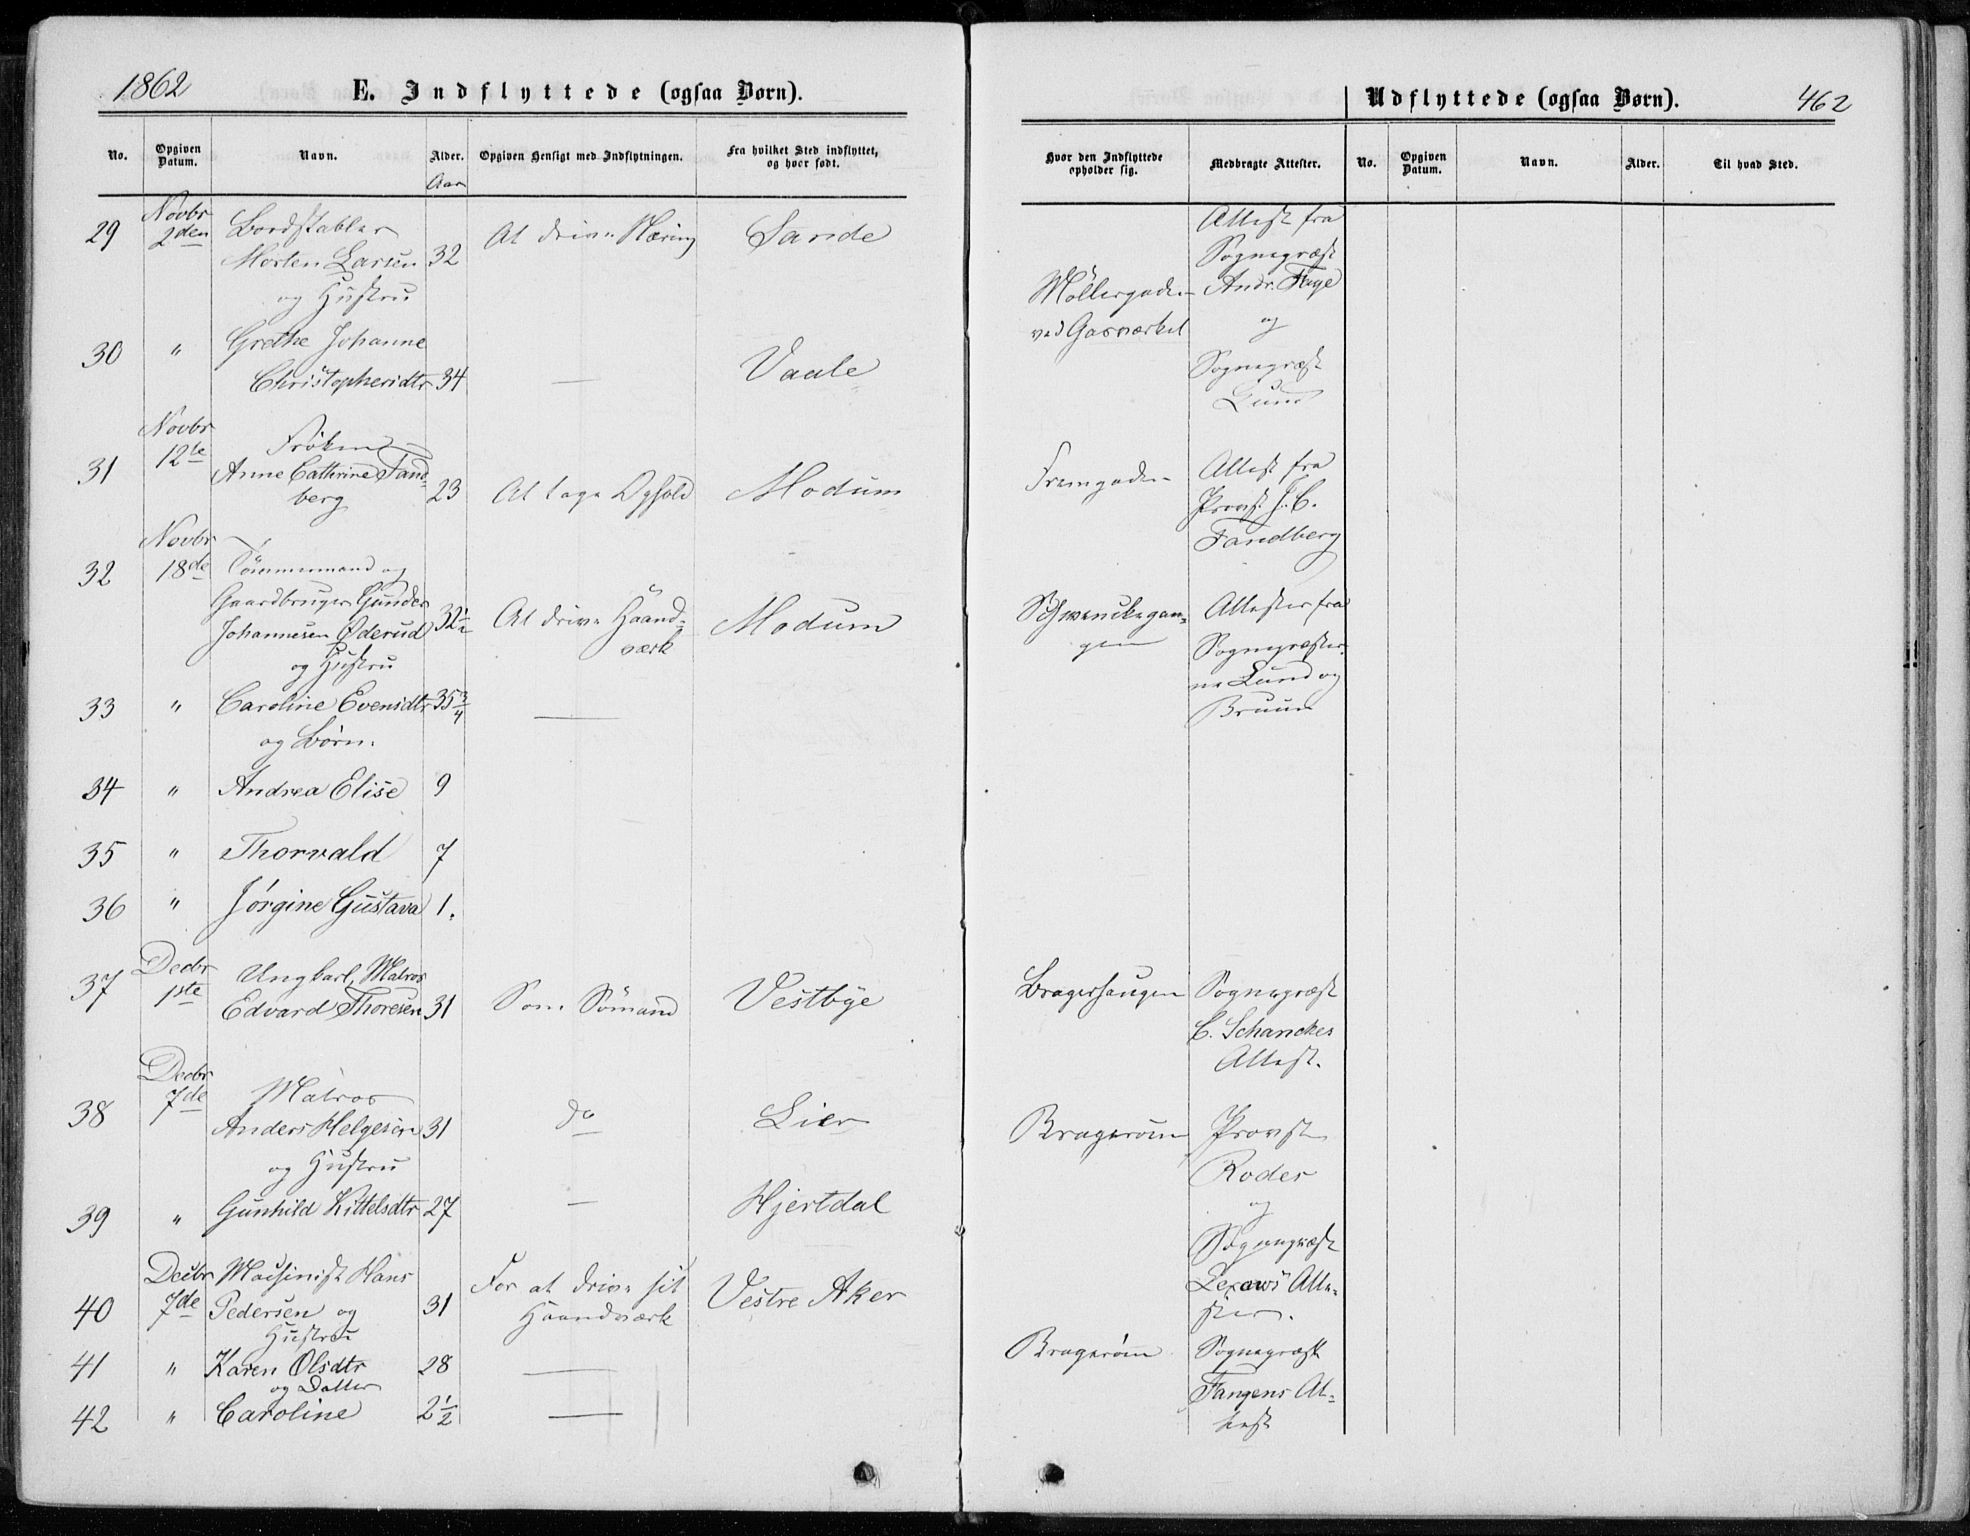 1862
E. Indflyttede (ogsaa Børn).
No.
Opgiven Datum.
Navn.
Alder.
Aar
Opgiven Hensigt med Indflytningen.
Fra hvilket Sted indflyttet, og hvor født.
29 Novbr 2den Bordstabler
Morten Larsen 32 At drive Næring Sande
og Hustru
30 " Grethe Johanne
Christophersdtr 34 — Vaale
31 Novbr 12te Frøken
Anne Cathrine Tand-
berg 23 At tage Ophold Modum
32 Novbr 18de Tömmermand og
Gaardbruger Gunder
Johannesen Øderud 32½ At drive Haand- Modum
og Hustru værk
33 " Caroline Evensdtr 35¾ —
og Börn.
34 " Andrea Elise 9
35 " Thorvald 7
36 " Jørgine Gustava 1.
37 Decbr 1ste Ungkarl, Matros
Edvard Thoresen 31 Som Sömand Vestbye
38 Decbr 7de Matros
Anders Helgesen 31 do Lier
og Hustru
39 " Gunhild Kittelsdtr 27 — Hjertdal
40 Decbr 7de Maskinist Hans
Pedersen og 31 For at drive sit Vestre Aker
Hustru Haandværk
41 " Karen Olsdtr 28 —
og Datter
42 " Caroline 2½ —
Udflyttede (ogsaa Børn).
462
Hvor den Indflyttede opholder sig.
Medbragte Attester.
No.
Opgiven Datum.
Navn.
Alder.
Til hvad Sted.
Attest fra
Sognepræst
Möllergaden Andr. Hage
ved Gasværket og
Sognepræst
Lund
Fremgaden Attest fra
Provst J. C.
Tandberg
Schwenckegan- Attester fra
gen Sognepræster-
ne Lund og
Bruun
Bragerhaugen Sognepræst
C. Schanckes
Attest.
Bragerøen Provst
Roder
og
Sognepræst
Atte-
ster.
Bragerøen Sognepræst
Fangens At-
test